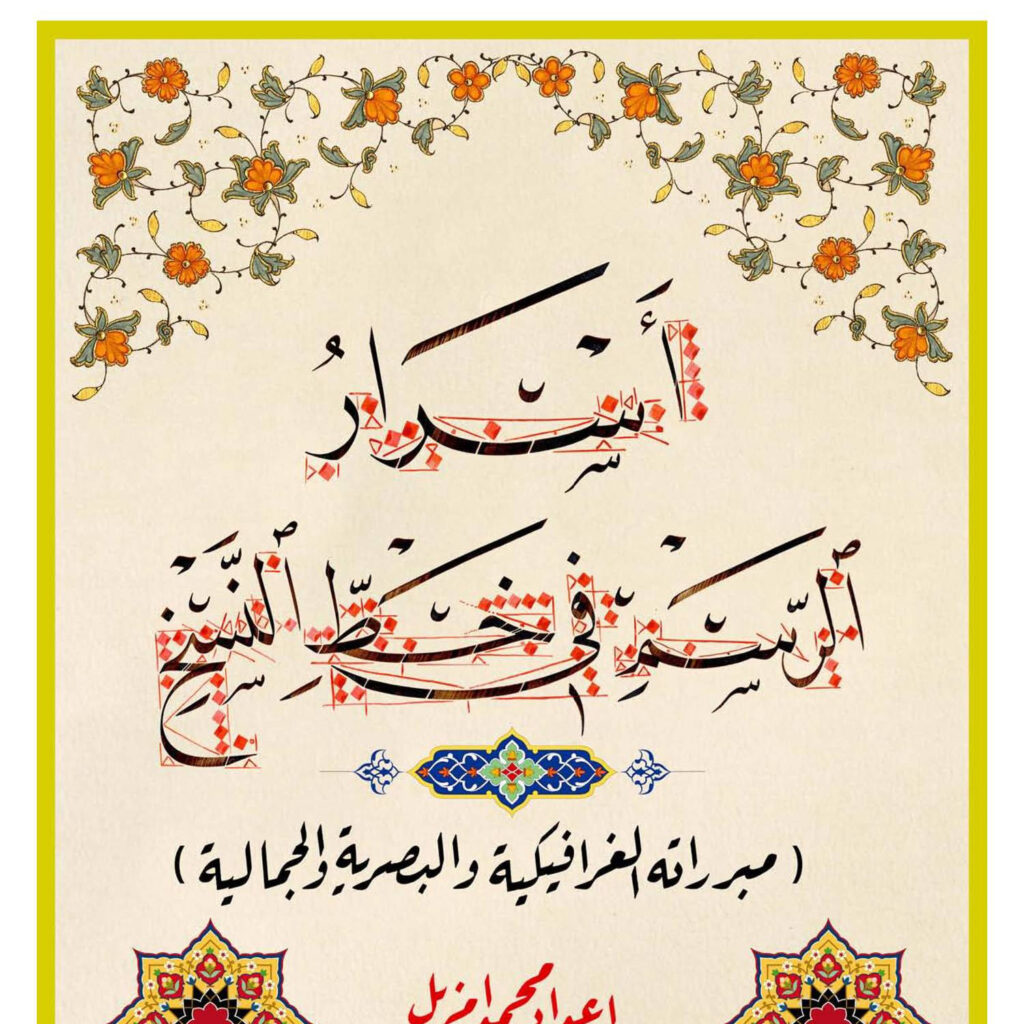 أَسْرَارُ
ٱلرَّسْمِ فِي خَطِّ ٱلنَّسْخِ
( مبرراته الغرافيكية والبصرية والجمالية )
اعداد محمد امزيل